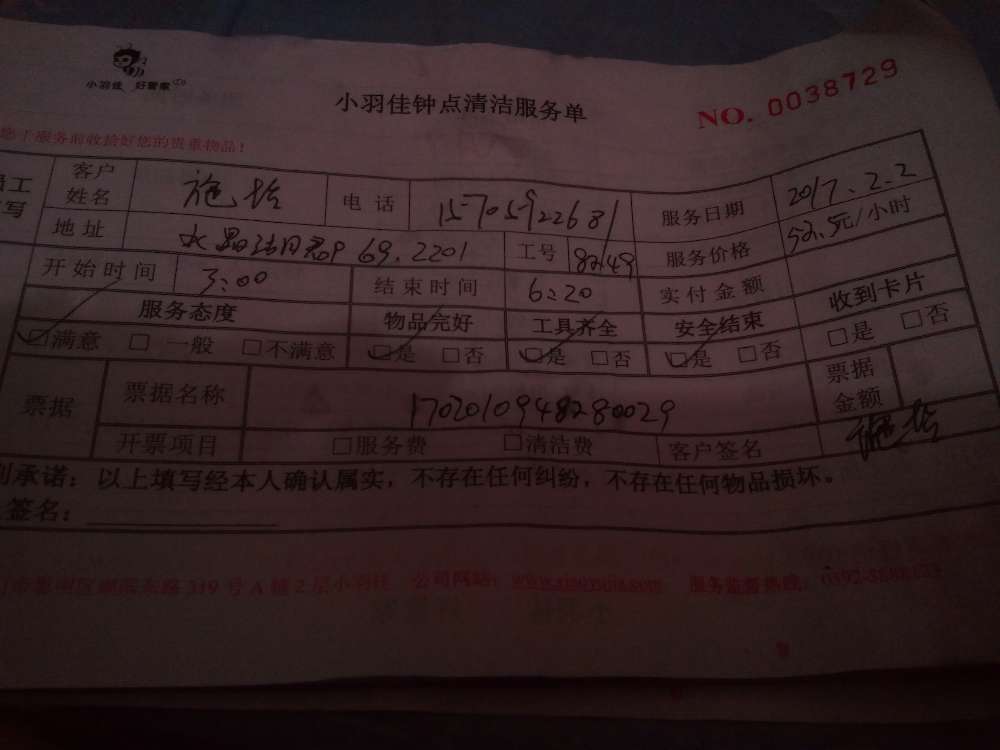 小羽佳 好管家
小羽佳钟点清洁服务单
NO. 0038729
服务前收拾好您的贵重物品!
客户姓名 施 电话 15705922681 服务日期 2017.2.2
地址 水晶 69.2201 工号 8249 服务价格 52.5元/小时
开始时间 3:00 结束时间 6:20 实付金额
服务态度 物品完好 工具齐全 安全结束 收到卡片
☑满意 □一般 □不满意 ☑是 □否 ☑是 □否 ☑是 □否 □是 □否
票据 票据名称 1702010948280029 票据金额
开票项目 □服务费 □清洁费 客户签名 施
承诺:以上填写经本人确认属实,不存在任何纠纷,不存在任何物品损坏。
签名:
319号A幢2层小羽佳 公司网站: 服务监督热线: